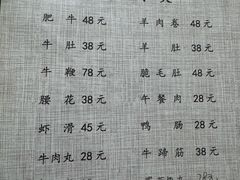 肥牛 48元
羊肉卷 48元
牛肚 38元
羊肚 38元
牛鞭 78元
脆毛肚 48元
腰花 38元
午餐肉 28元
虾滑 45元
鸭肠 28元
牛肉丸 28元
牛蹄筋 38元